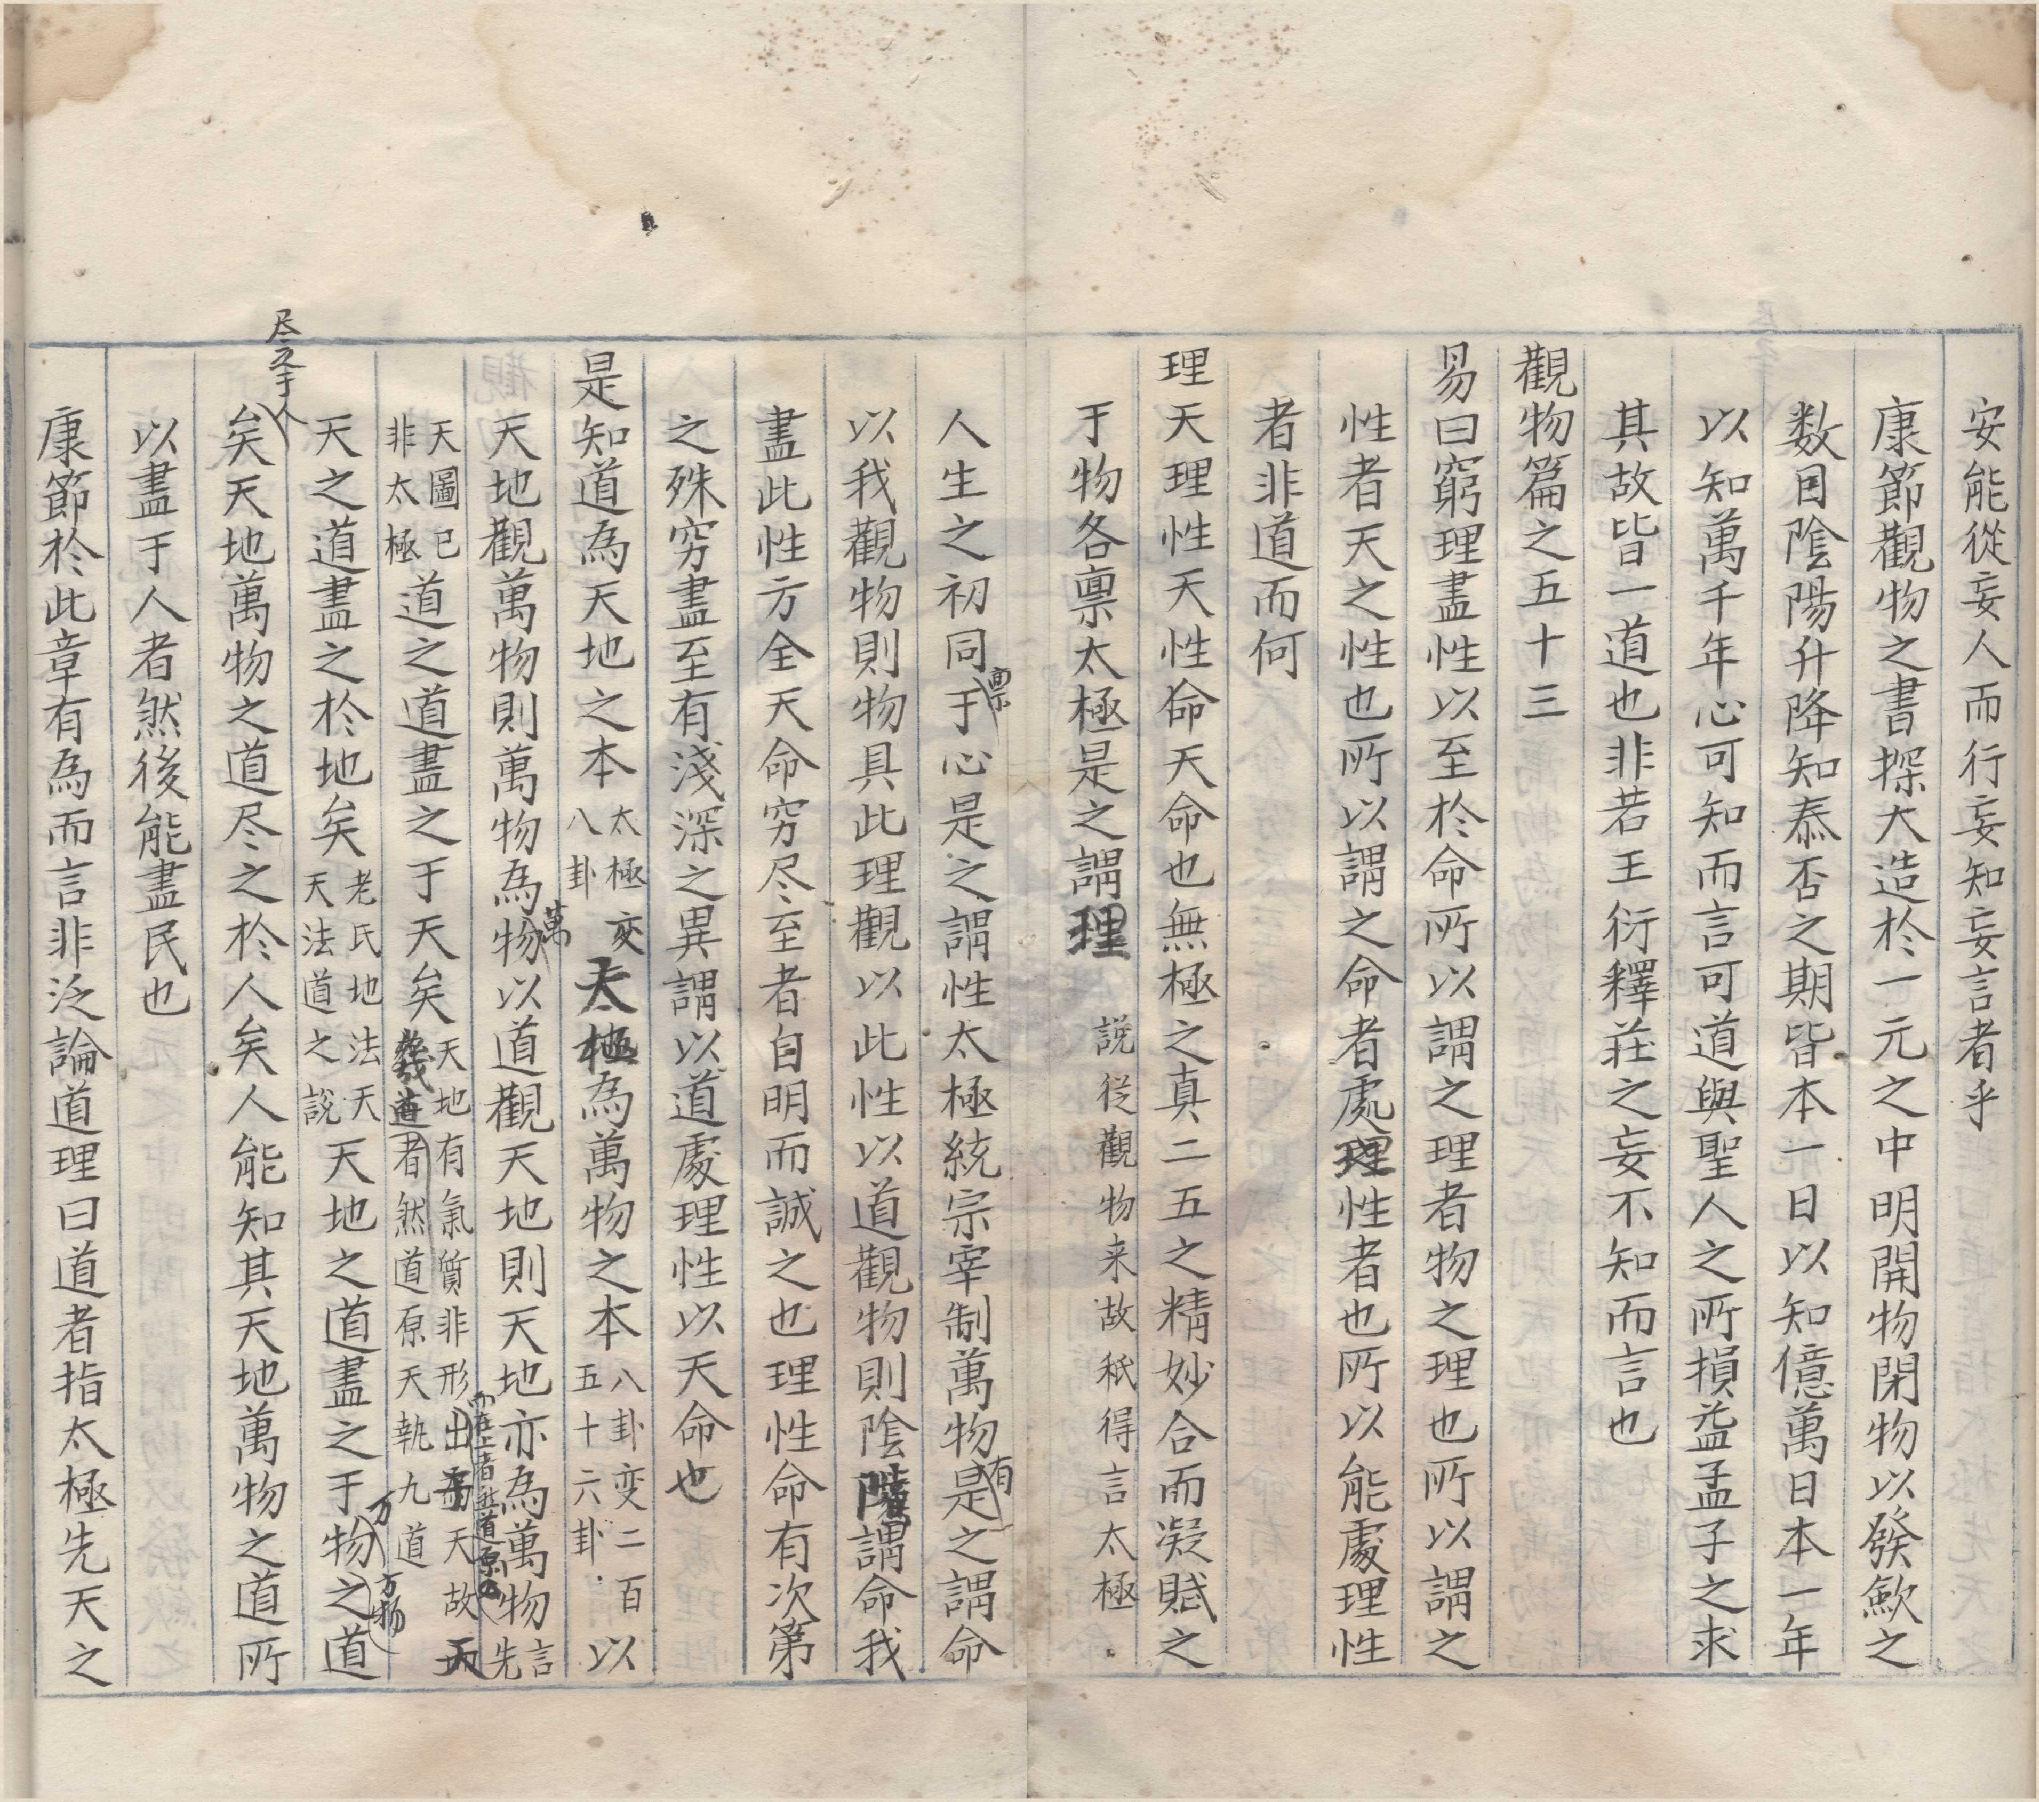 安能從妄人而行妄知妄言者乎
康節觀物之書探大造於一元之中明開物閉物以發歛之
数因陰陽升降知泰否之期皆本一日以知億萬日本一年
以知萬千年心可知而言可道與聖人之所損益孟子之求
其故皆一道也非若王衍釋莊之妄不知而言也
觀物篇之五十三
易曰窮理盡性以至於命所以謂之理者物之理也所以謂之
性者天之性也所以謂之命者處理性者也所以能處理性
者非道而何
理天理性天性命天命也無極之真二五之精妙合而凝賦之
于物各禀太極是之謂理 說從觀物来故秖得言太極
人生之初同禀于心是之謂性太極統宗宰制萬物有是之謂命
以我觀物則物具此理觀以此性以道觀物則陰陽謂命我
盡此性方全天命穷尽至者自明而誠之也理性命有次第
之殊穷盡至有淺深之異謂以道處理性以天命也
是知道為天地之本太極变八卦太極為萬物之本八卦变二百五十六卦以
天地觀萬物則萬物為萬物以道觀天地則天地亦為萬物言先
天圖已非太極道之道盡之于天矣天地有氣質非形而在上者非道原也出天故者然道原天執九道
天之道盡之於地矣老氏地法天天法道之說天地之道盡之于万物万物之道
尽之于人矣天地萬物之道尽之於人矣人能知其天地萬物之道所
以盡于人者然後能盡民也
康節於此章有為而言非泛論道理曰道者指太極先天之